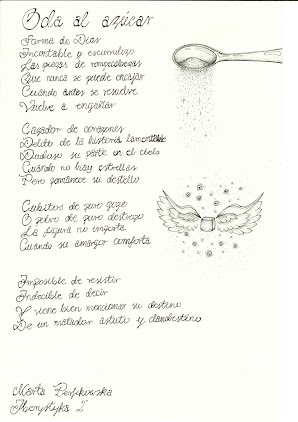 Oda al azúcar
Forma de Dios
Incontable y escurridizo
Las piezas de rompecabezas
Que nunca se puede encajar
Cuando antes se resuelve
Vuelve a engañar
Cazador de corazones
Delito de la historia lamentable
Dudoso su parte en el cielo
Cuando no hay estrellas
Pero permanece su destello
Cubitos de puro gozo
O polvo de puro destrozo
La figura no importa
Cuando su amargor comforta
Imposible de resistir
Indecible de decir
Y viene bien mencionar su destino
De un matador astuto y clandestino
Marta